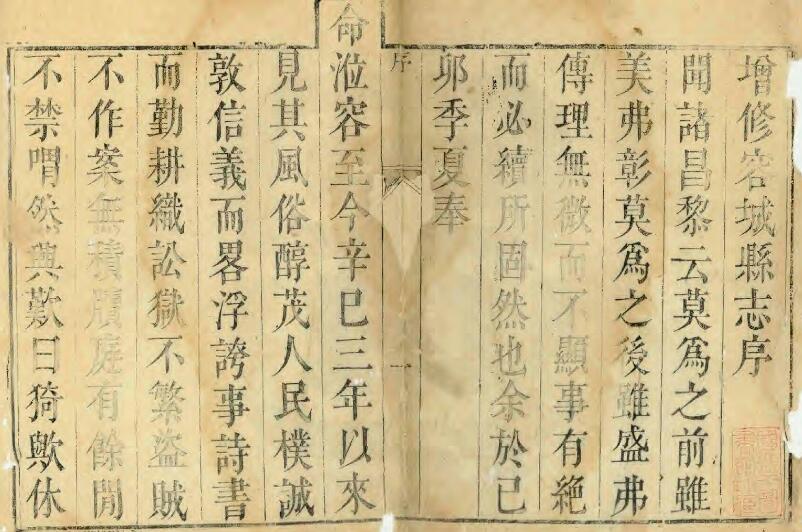 增修容城縣志序
聞諸昌黎云莫爲之前雖
美弗彰莫爲之後雖盛弗
傳理無微而不顯事有絶
而必續所固然也余於己
卯季夏奉
序
一
命涖容至今辛巳三年以來
見其風俗醇茂人民樸誠
敦信義而畧浮誇事詩書
而勤耕織訟獄不繁盜賊
不作案無積牘庭有餘閒
不禁喟然興歎曰猗歟休